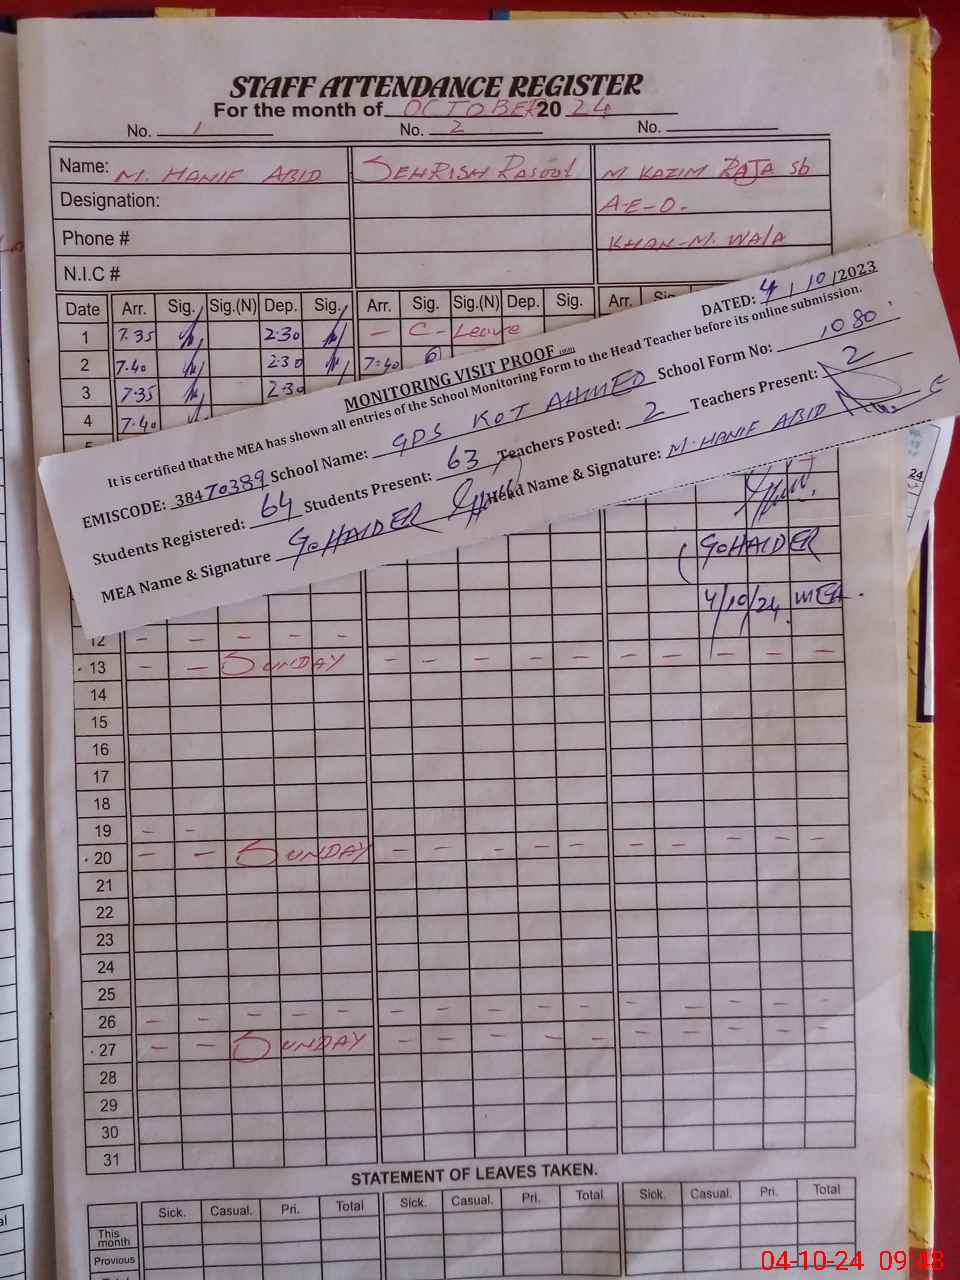 STAFF ATTENDANCE REGISTER
For the month of OCTOBER 2024
No. 1 No. 2 No.
Name: M. HANIF ABID SEHRISH RASOOL M KAZIM RAJA Sb
Designation: A-E-O.
Phone # KHAN-M. WAlA
N.I.C #
Date Arr. Sig. Sig.(N) Dep. Sig. Arr. Sig. Sig.(N) Dep. Sig. Arr.
1 7.35 2.30 - C - Leave
2 7.40 2.30 7-40
3 7.35 2.30
4 7.40
MONITORING VISIT PROOF
DATED: 4 / 10 /2023
It is certified that the MEA has shown all entries of the School Monitoring Form to the Head Teacher before its online submission.
EMISCODE: 38470389 School Name: GPS KOT AHMED School Form No: 1080
Students Registered: 64 Students Present: 63 Teachers Posted: 2 Teachers Present: 2
MEA Name & Signature G.HAIDER Head Name & Signature: M. HANIF ABID
(G.HAIDER
4/10/24 MEA.
12 - - - - -
13 - - SUNDAY - - - - - - - - - -
14
15
16
17
18
19 - -
20 - - SUNDAY - - - - - - - - - -
21
22
23
24
25
26 - - - - - - - - - - - - - - -
27 - - SUNDAY - - - - - - - - - -
28
29
30
31
STATEMENT OF LEAVES TAKEN.
Sick. Casual. Pri. Total Sick. Casual. Pri. Total Sick. Casual. Pri. Total
This month
Previous
04-10-24 09:48